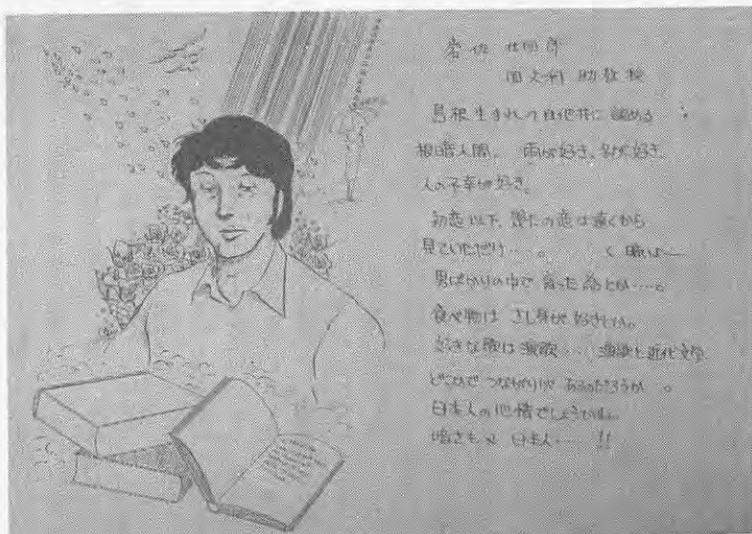 岩佐 壮四郎
国文科 助教授
島根生まれの自他共に認める
根暗人間。 雨が好き、秋が好き、
人の不幸が好き。
初恋以下、幾たの恋は遠くから
見ていただけ…。 く 暗いー
男ばかりの中で育った為とか…。
食べ物は さし身が好きとか。
好きな歌は演歌… 演歌と近代文学
どこかで つながりが あるのだろうか 。
日本人の心情でしょうかね。
暗さも又 日本人…… !!